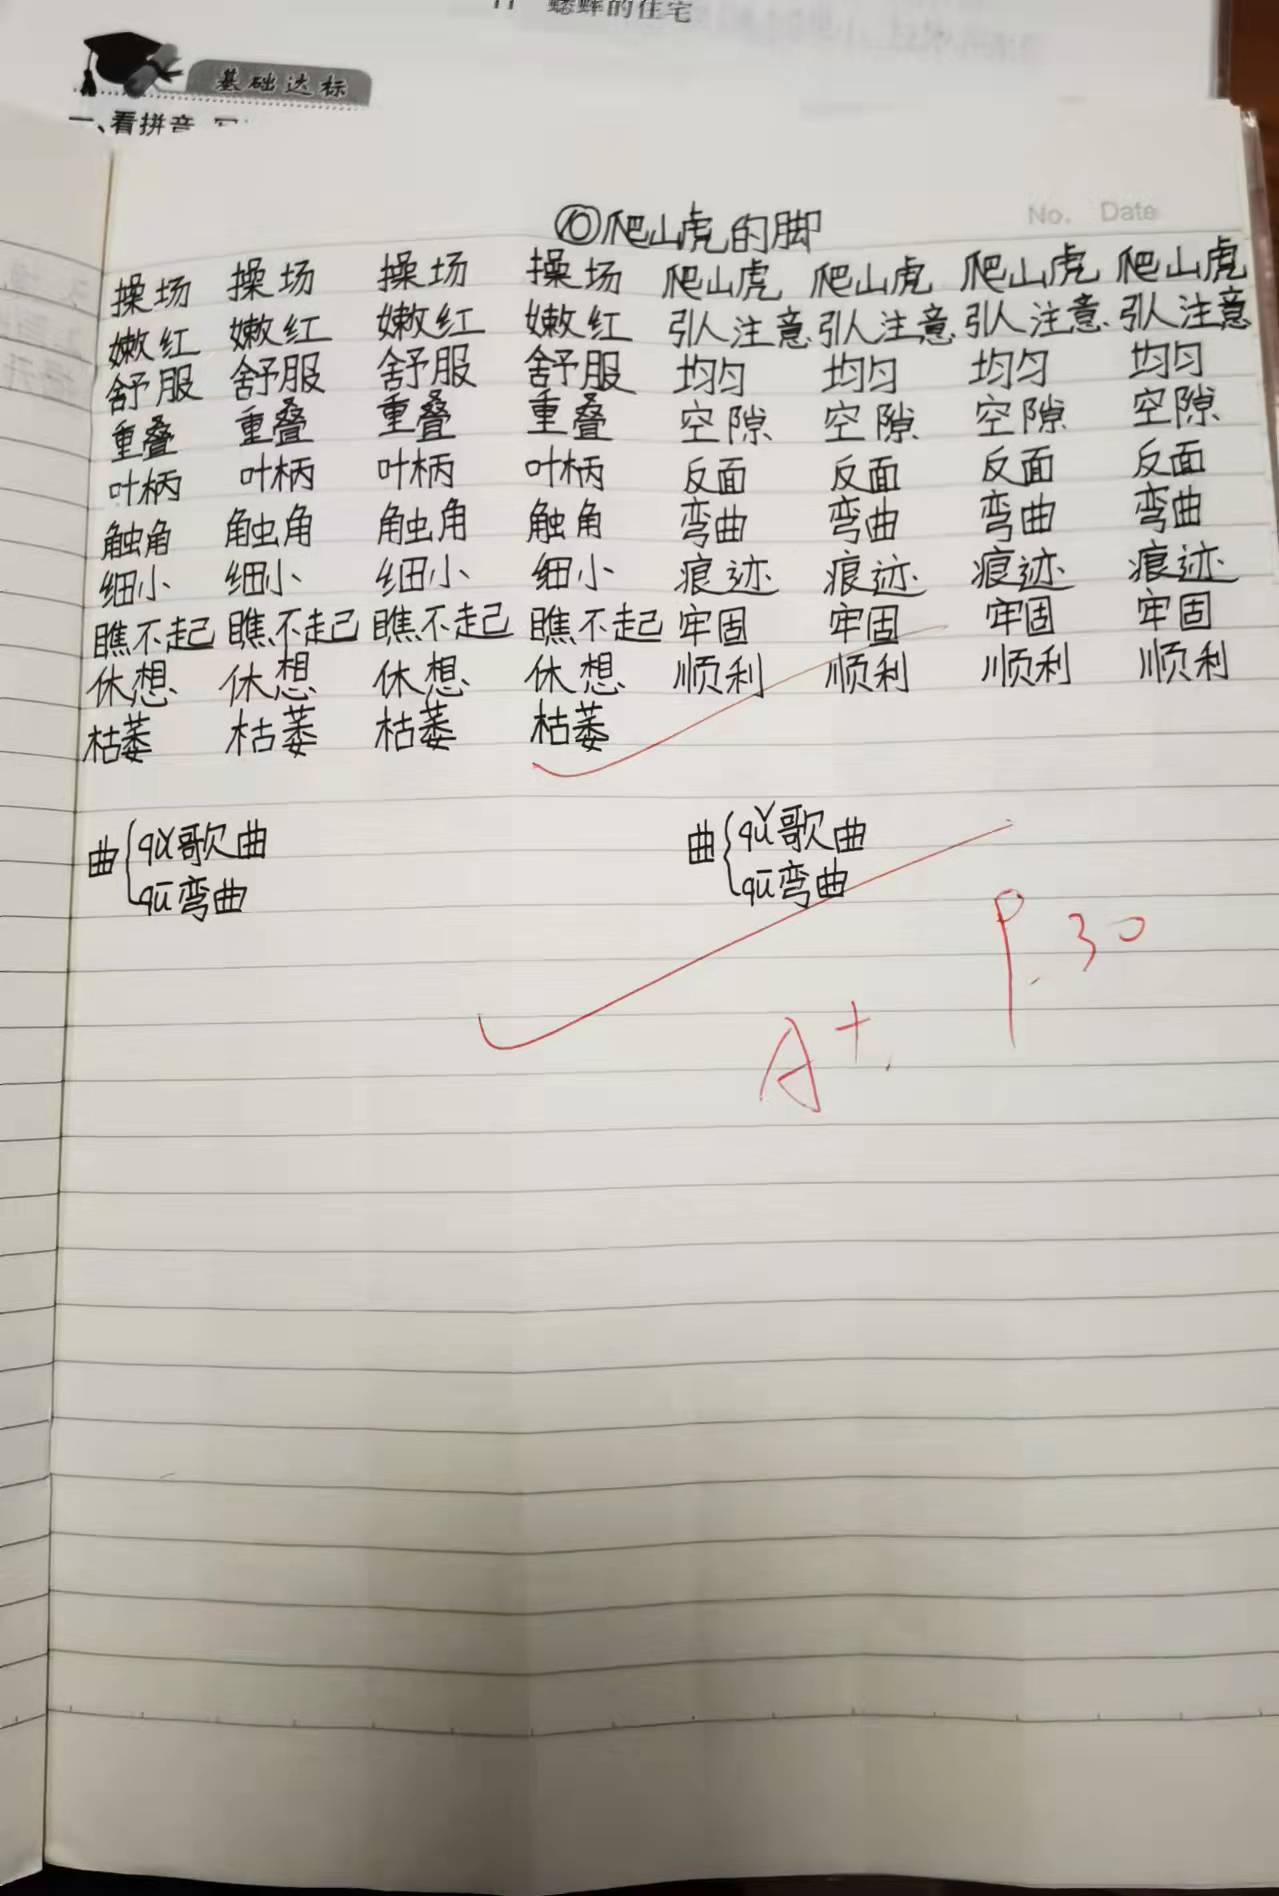 11 蟋蟀的住宅
基础达标
一、看拼音
No. Date
⑩爬山虎的脚
操场 操场 操场 操场 爬山虎 爬山虎 爬山虎 爬山虎
嫩红 嫩红 嫩红 嫩红 引人注意 引人注意 引人注意 引人注意
舒服 舒服 舒服 舒服 均匀 均匀 均匀 均匀
重叠 重叠 重叠 重叠 空隙 空隙 空隙 空隙
叶柄 叶柄 叶柄 叶柄 反面 反面 反面 反面
触角 触角 触角 触角 弯曲 弯曲 弯曲 弯曲
细小 细小 细小 细小 痕迹 痕迹 痕迹 痕迹
瞧不起 瞧不起 瞧不起 瞧不起 牢固 牢固 牢固 牢固
休想 休想 休想 休想 顺利 顺利 顺利 顺利
枯萎 枯萎 枯萎 枯萎
曲{qǔ歌曲 曲{qǔ歌曲
qū弯曲 qū弯曲
P.30
A+